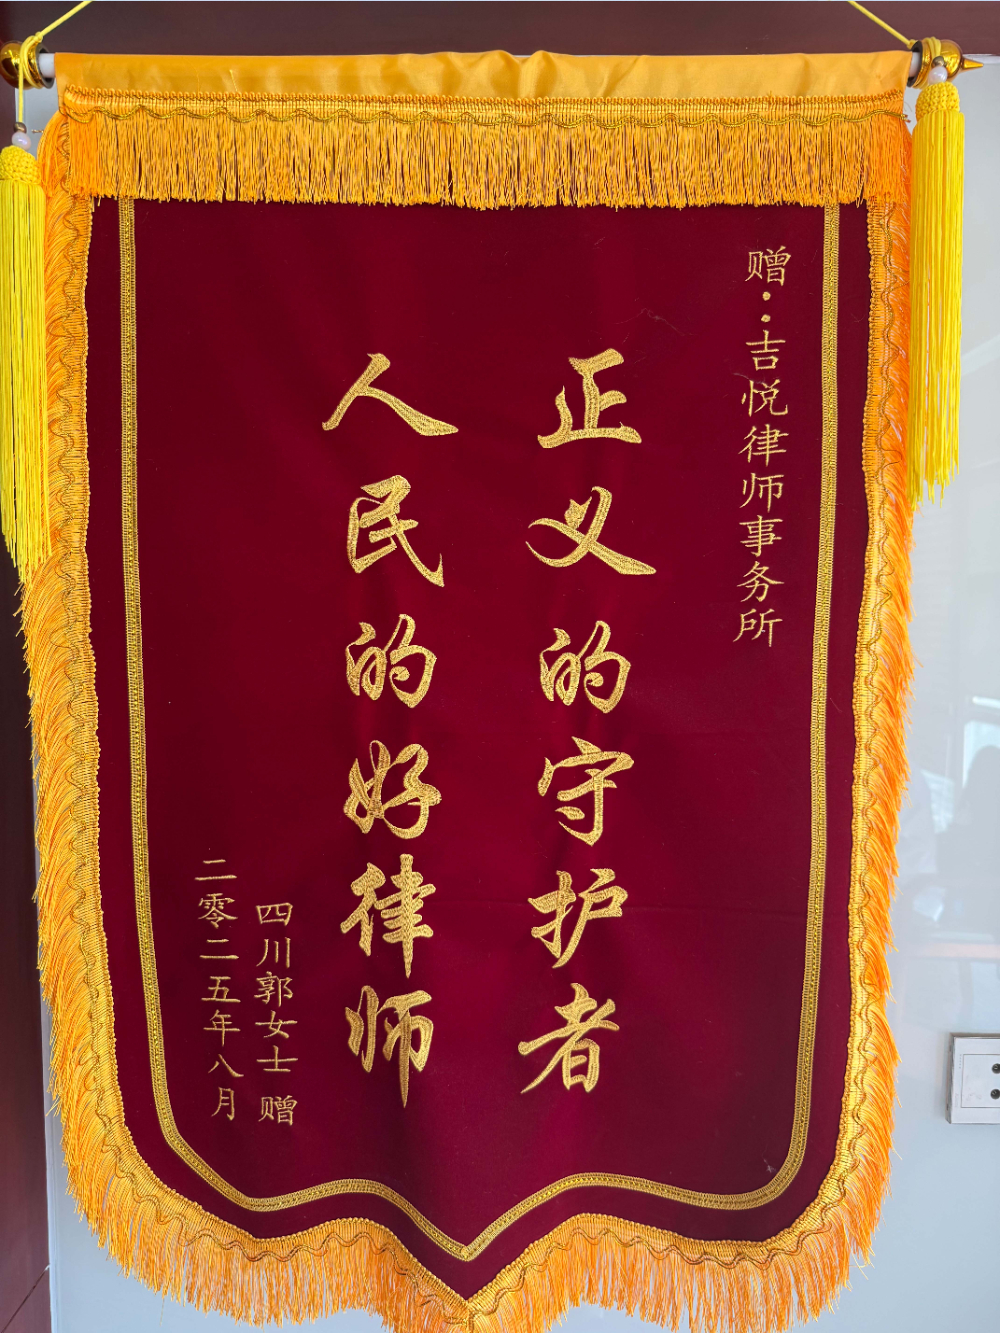 赠：吉悦律师事务所
正义的守护者
人民的好律师
四川郭女士 赠
二零二五年八月